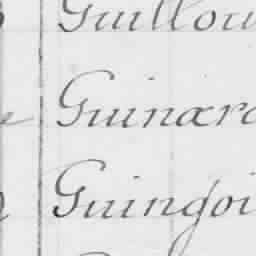 Guillou
Guinard
Guingoi